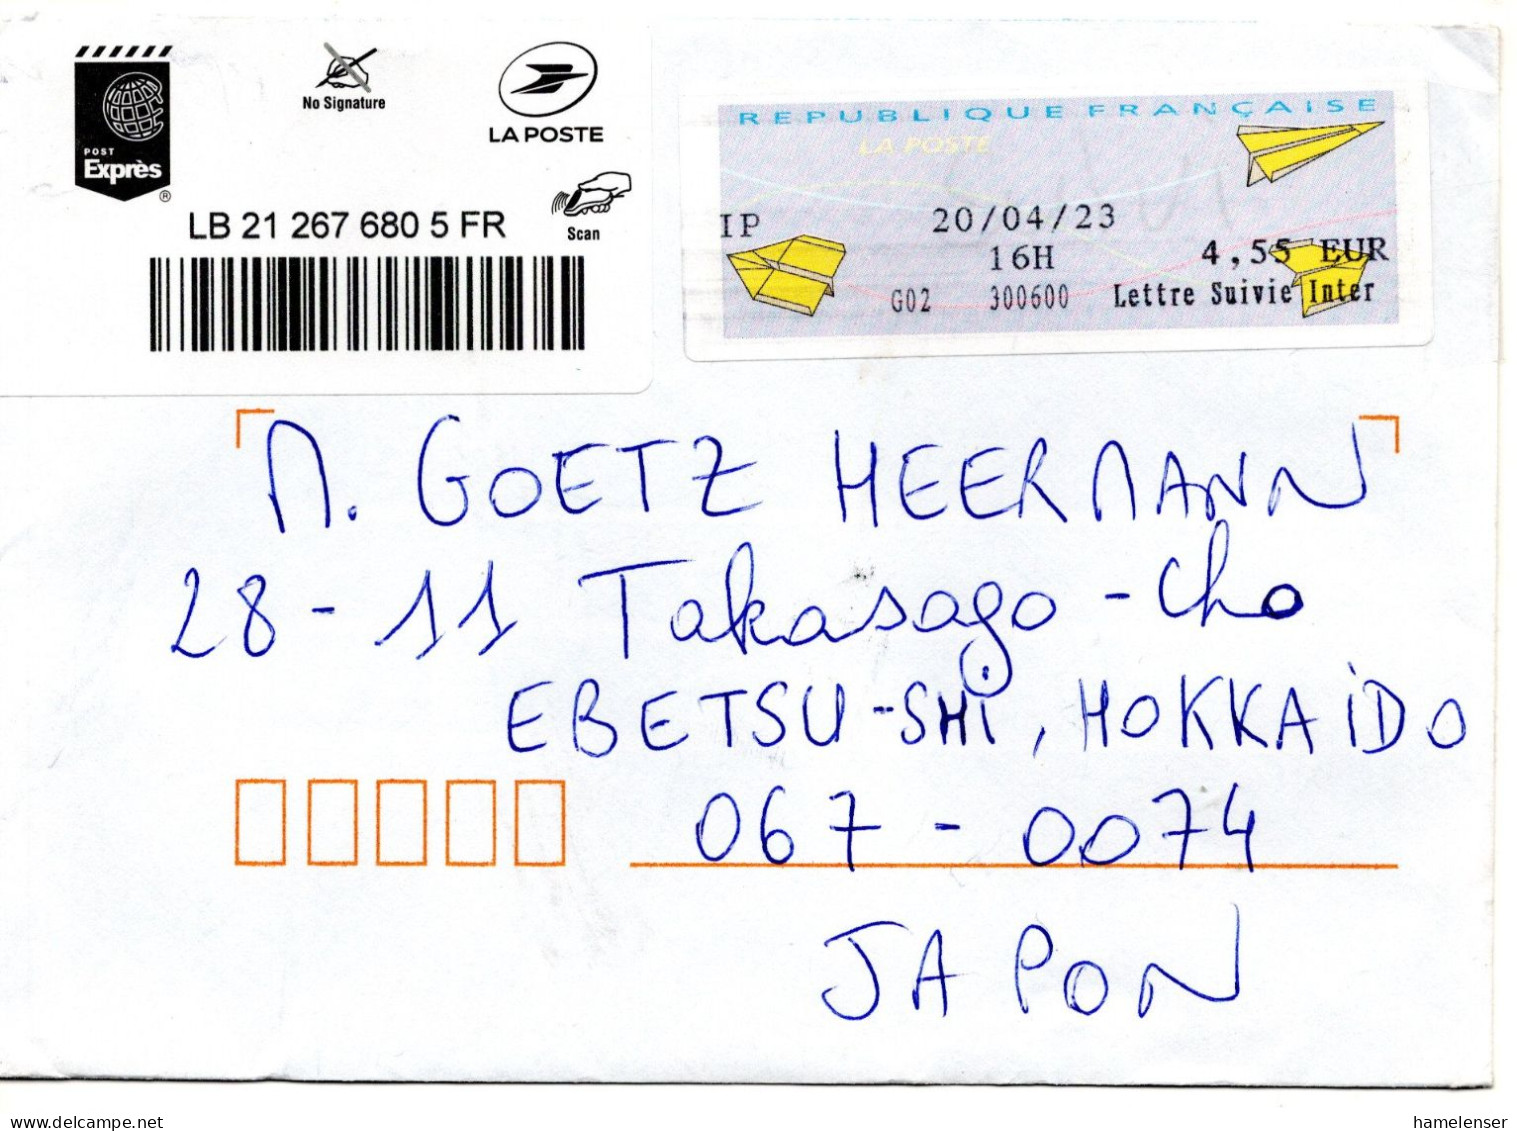 POST
Exprès
®
No Signature
LA POSTE
LB 21 267 680 5 FR
Scan
REPUBLIQUE FRANÇAISE
LA POSTE
IP 20/04/23
16H 4,55 EUR
G02 300600 Lettre Suivie Inter
M. GOETZ HEERMANN
28-11 Takasago-Cho
EBETSU-SHi, HOKKAiDO
067-0074
JAPON
www.delcampe.net
hamelenser